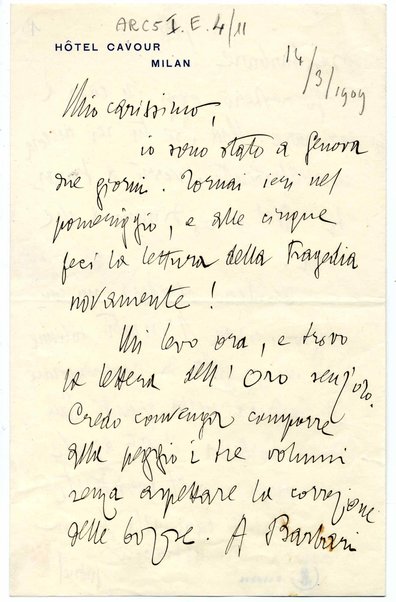 ARC5 I. E. 4/11
HÔTEL CAVOUR
MILAN
14/3/1909
Mio carissimo,
io sono stato a Genova
due giorni. Tornai ieri nel
pomeriggio, e alle cinque
feci la lettura della Tragedia
novamente!
Mi levo ora, e trovo
la lettera dell' Oro senz'oro.
Credo convenga comporre
alla peggio i tre volumi
senza aspettare la correzione
delle bozze. A Barbèri